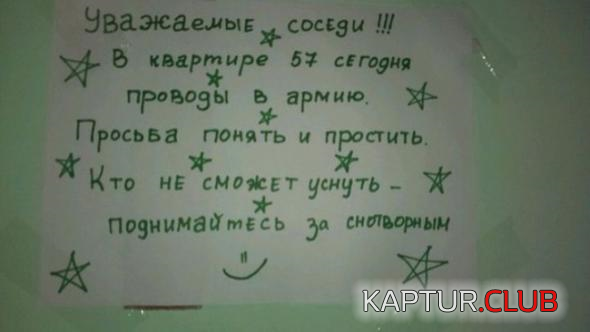 Уважаемые соседи !!!
В квартире 57 сегодня
проводы в армию.
Просьба понять и простить.
Кто не сможет уснуть –
поднимайтесь за снотворным
KAPTUR.CLUB